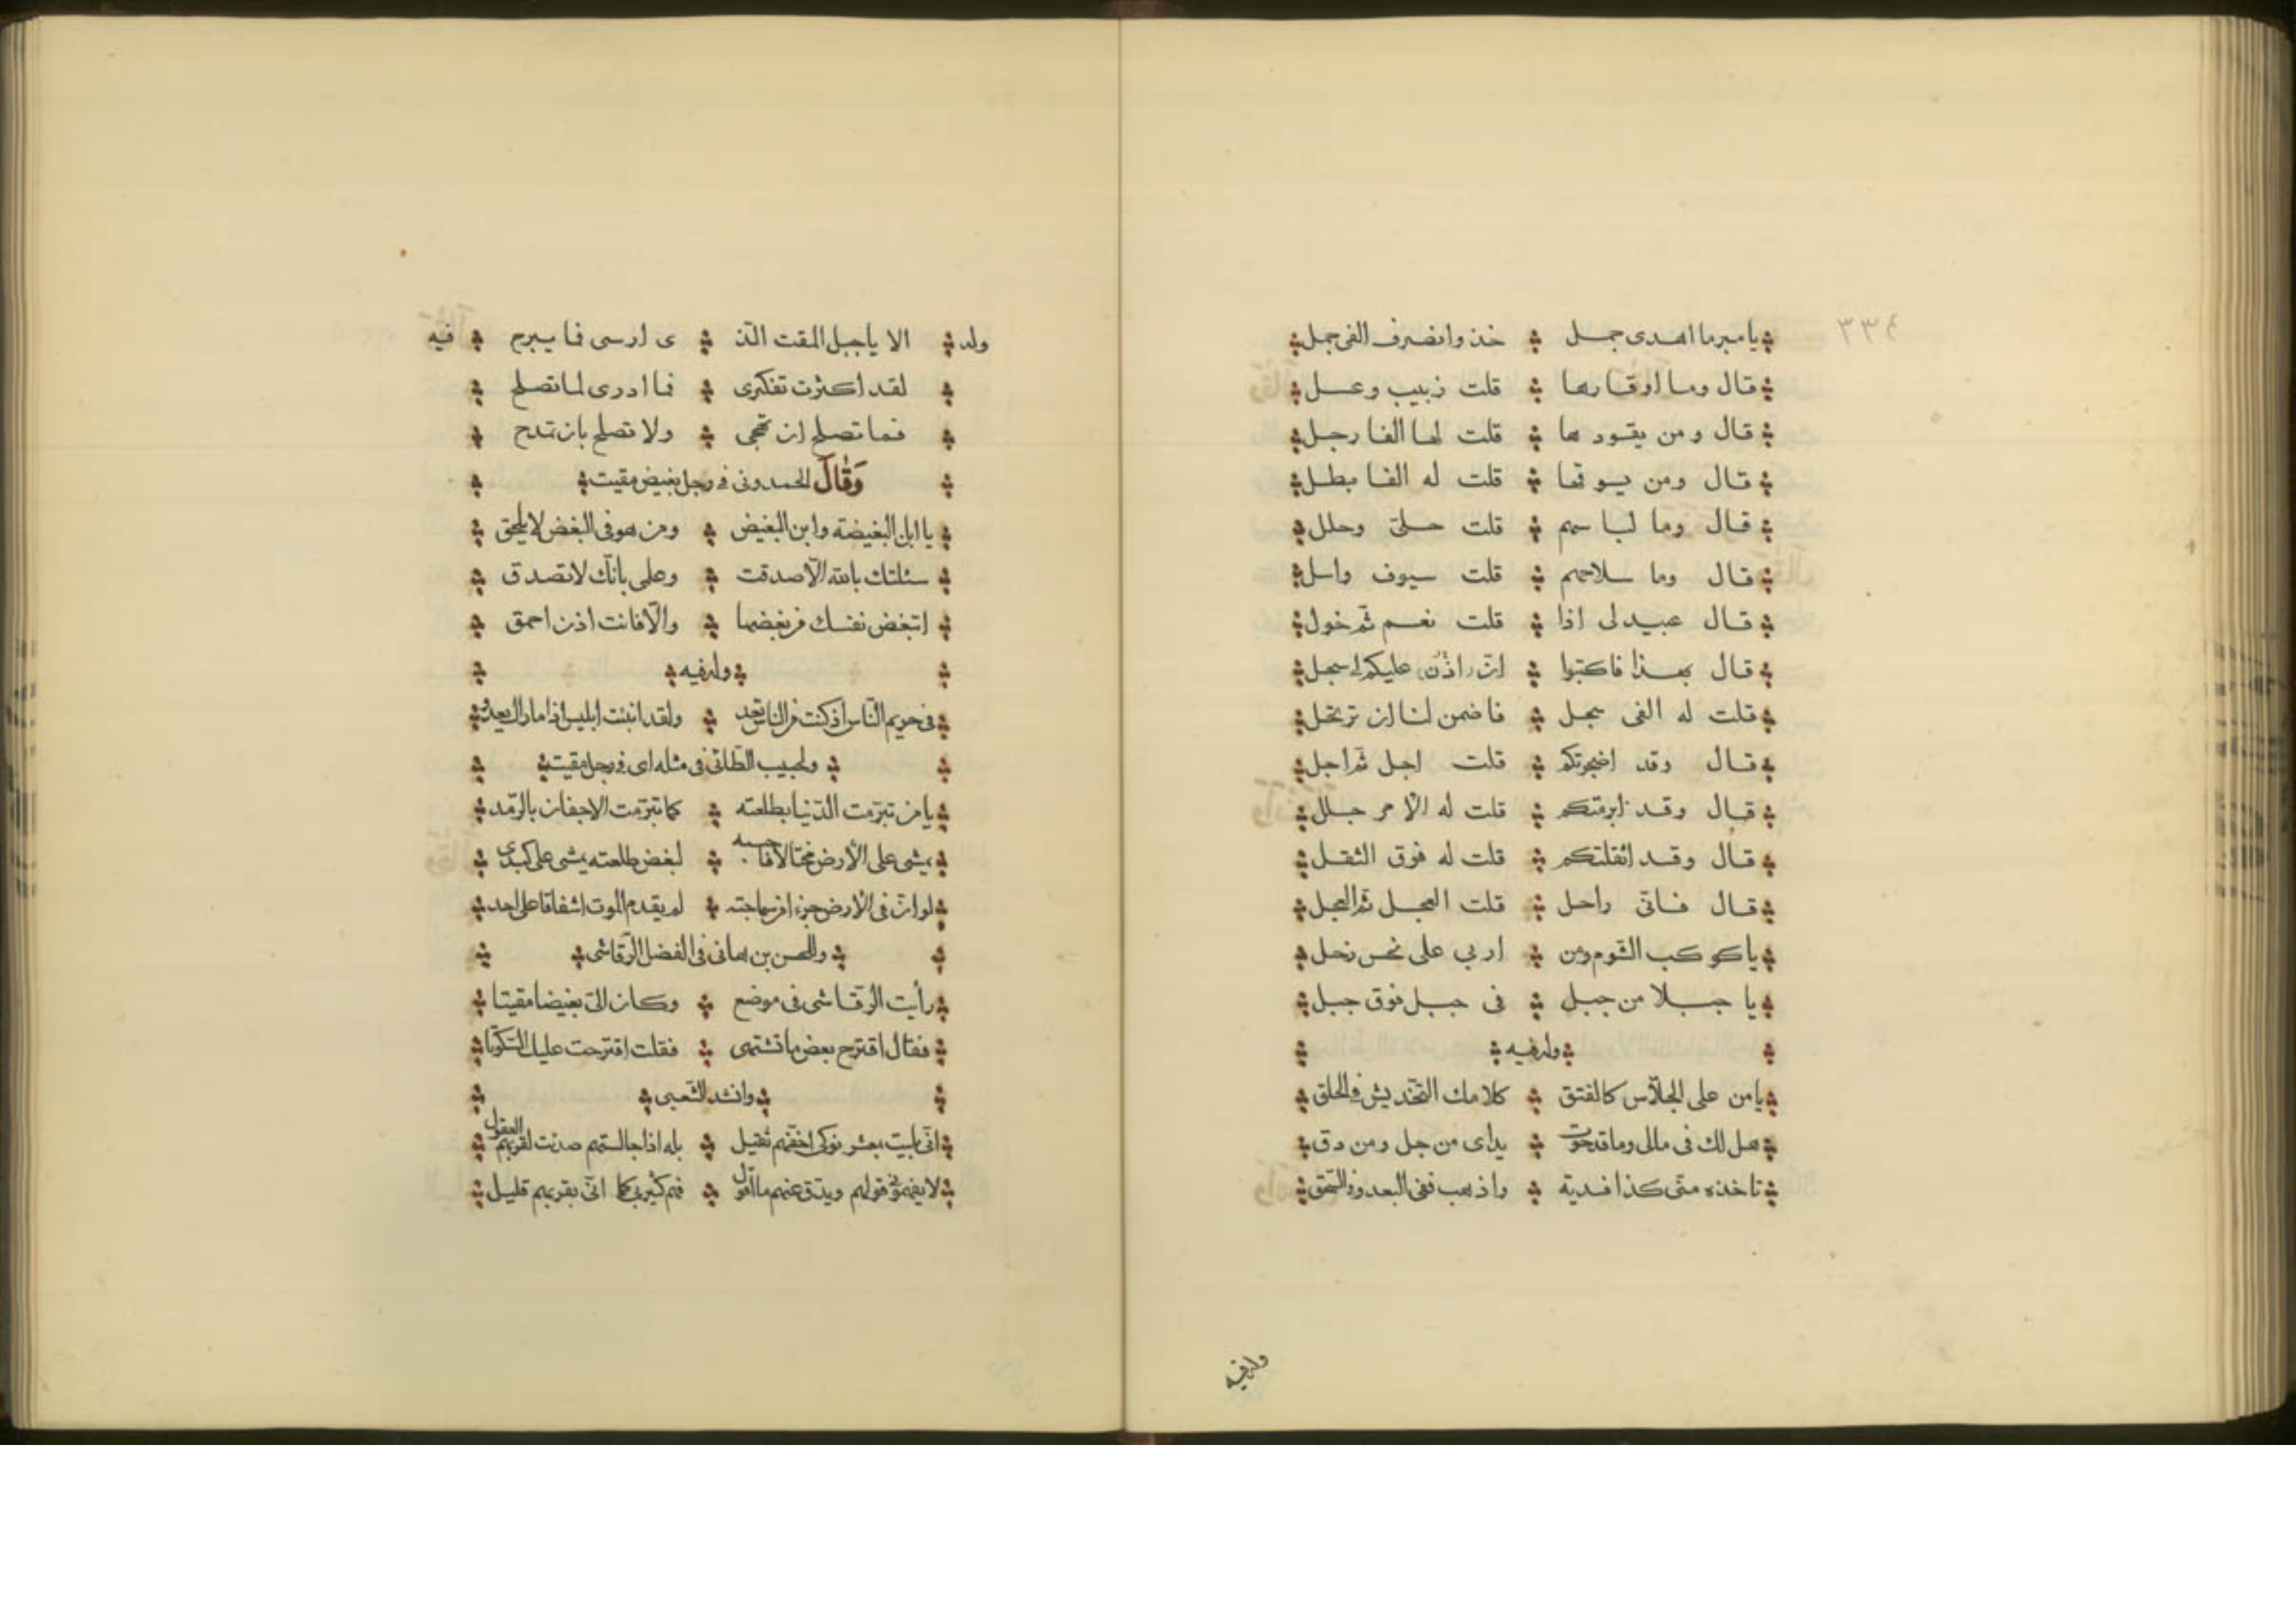 ٣٣٤
يا مبرما اهدى جمل خذ وانصرف الفى جمل
قال وما اوقارها قلت زبيب وعسل
قال ومن يقودها قلت لها الفا رجل
قال ومن يسوقها قلت له الفا بطل
قال وما لباسهم قلت حلىّ وحلل
قال وما سلاحهم قلت سيوف واسل
قال عبيد لى اذا قلت نعم ثم خول
قال بهذا فاكتبوا انّ اذن عليكم لى سجل
قلت له الفى سجل فاضمن لنا ان ترتحل
قال وقد اضجرتكم قلت اجل ثم اجل
قال وقد ابرمتكم قلت له الأمر جلل
قال وقد اثقلتكم قلت له فوق الثقل
قال فانّى راحل قلت العجل ثم العجل
يا كوكب الشوم ومن اربى على نحس زحل
يا جبلا من جبل فى جبل فوق جبل
وله فيه
يا من على الجلّاس كالفتق كلامك التخديش فى الحلق
هل لك فى مالى وما قد حوت يداى من جل ومن دق
تاخذه منّى كذا فدية واذهب ففى البعد وفى السحق
وله فيه
وله الا يا جبل المقت الذ ى ارسى فما يبرح فيه
لقد اكثرت تفكيرى فما ادرى لما تصلح
فما تصلح ان تهجى ولا تصلح بان تمدح
وَقَالَ الحمدونى فى رجل بغيض مقيت
يا ابن البغيضة وابن البغيض ومن هو فى البغض لا يلحق
سئلتك بالله الّا صدقت وعلمى بانّك لا تصدق
اتبغض نفسك من بغضها والّا فانت اذن احمق
وله فيه
فى حريم النّاس اذ كنت من الناس تعد ولقد انبئت ابليس اذا ماراك يعدو
ولحبيب الطائى فى مثله اى فى رجل مقيت
يا من تبرّمت الدّنيا بطلعته كما تبرّمت الاجفان بالرّمد
يمشى على الأرض مختالا فاحسبه لبغض طلعته يمشى على كبدى
لو انّ فى الأرض جزء من سماجته لم يقدم الموت اشفاقا على احد
وللحسن بن هانى فى الفضل الرّقاشى
رأيت الرّقاشى فى موضع وكان الىّ بغيضا مقيتا
فقال اقترح بعض ما تشتهى فقلت اقترحت عليك السّكوتا
وانشد الشّعبى
انّى بليت بمعشر نوكى اخفّهم ثقيل بله اذا جالستهم صدئت لقربهم العقول
لا يفهمونى قولهم ويدق عنهم ما اقول فهم كثير بى كما انّى بقربهم قليل